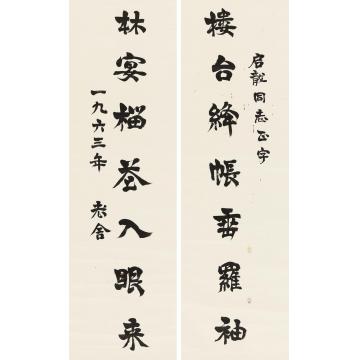 启龍同志正字
楼台絳帳垂羅袖
林宴榴花入眼来
一九六三年 老舍